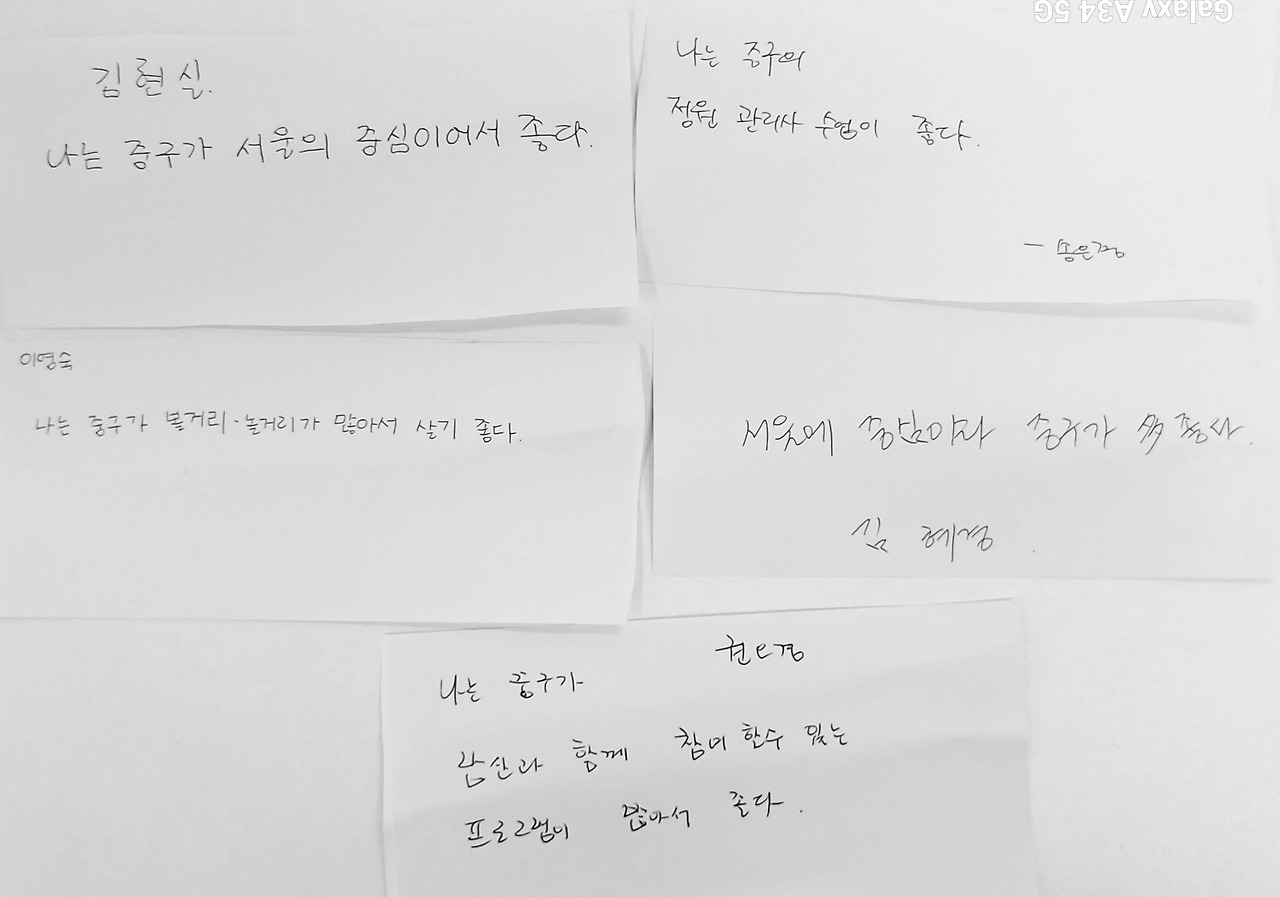 김현실.
나는 중구가 서울의 중심이어서 좋다.
나는 중구의
정원 관리사 수업이 좋다.
- 송은정
이영숙
나는 중구가 볼거리·놀거리가 많아서 살기 좋다.
서울에 중심이라 중구가 좋다.
김 혜경.
권
나는 중구가
남산과 함께 참여 할수 있는
프로그램이 많아서 좋다.
Galaxy A34 5G